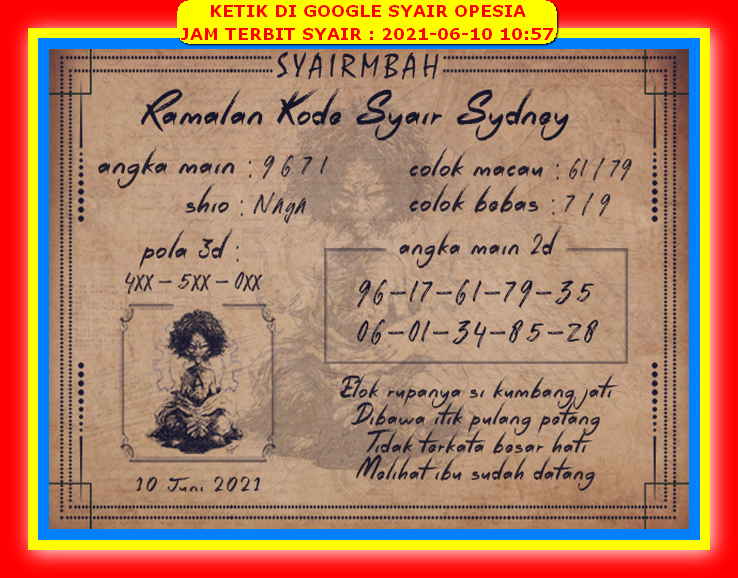 KETIK DI GOOGLE SYAIR OPESIA
JAM TERBIT SYAIR : 2021-06-10 10:57
SYAIRMBAH
Ramalan Kode Syair Sydney
angka main : 9 6 7 1
colok macau : 61 / 79
shio : Naga
colok bebas : 7 / 9
pola 3d :
4XX - 5XX - 0XX
angka main 2d
96-17-61-79-35
06-01-34-85-28
Elok rupanya si kumbang jati
Dibawa itik pulang petang
Tidak terkata besar hati
Melihat ibu sudah datang
10 Juni 2021